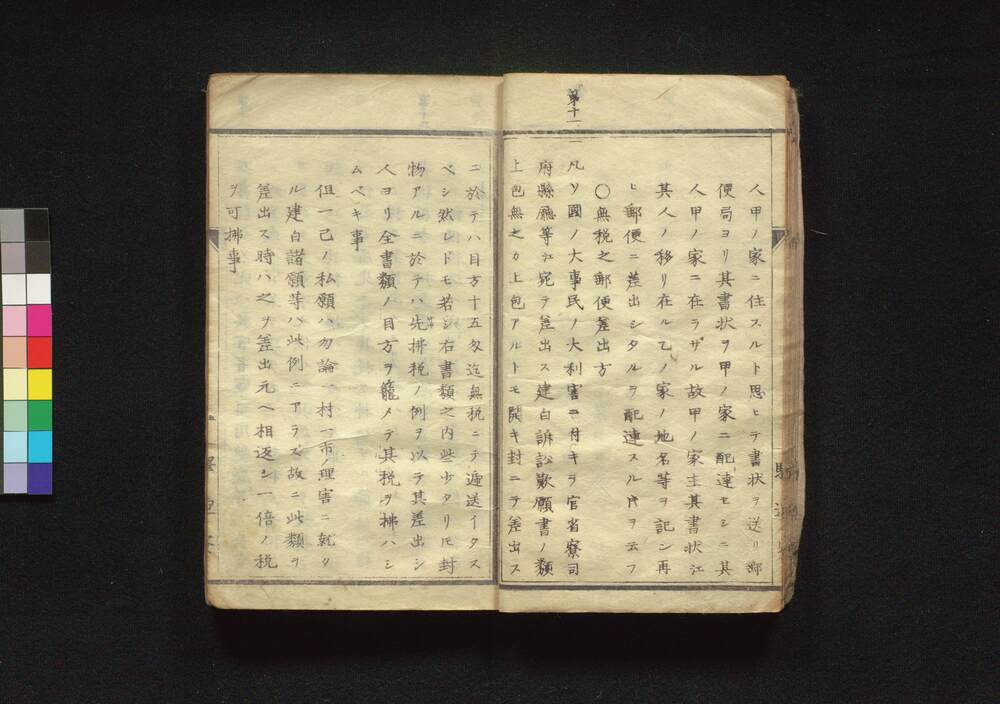 第十一
人甲ノ家ニ住スルト思ヒテ書状ヲ送リ郵
便局ヨリ其書状ヲ甲ノ家ニ配達セシニ其
人甲ノ家ニ在ラザル故甲ノ家主其書状江
其人ノ移リ在ル乙ノ家ノ地名等ヲ記シ再
ヒ郵便ニ差出シタルヲ配達スル片ヲ云フ
〇無税之郵便差出方
凡ソ國ノ大事民ノ大利害ニ付キラ官省寮司
府縣廳等江宛テ差出ス建白訴訟歎願書ノ類
上包無之カ上包アルトモ開キ封ニテ差出ス
ニ於テハ目方十五匁迄無税ニテ逓送イタス
ベシ然レドモ若シ右書類之内些少タリ圧封
物アルニ於テハ先排税ノ例ヲ以テ其差出シ
人ヨリ全書類ノ目方ヲ籠メテ其税ヲ拂ハシ
ムベキ事
但一己ノ私願ハ勿論一村一市ノ理害ニ就タ
ル建白諸願等ハ此例ニアラズ故ニ此類ヲ
差出ス時ハ之ヲ差出元ヘ相返シ一倍ノ税
ヲ可拂事